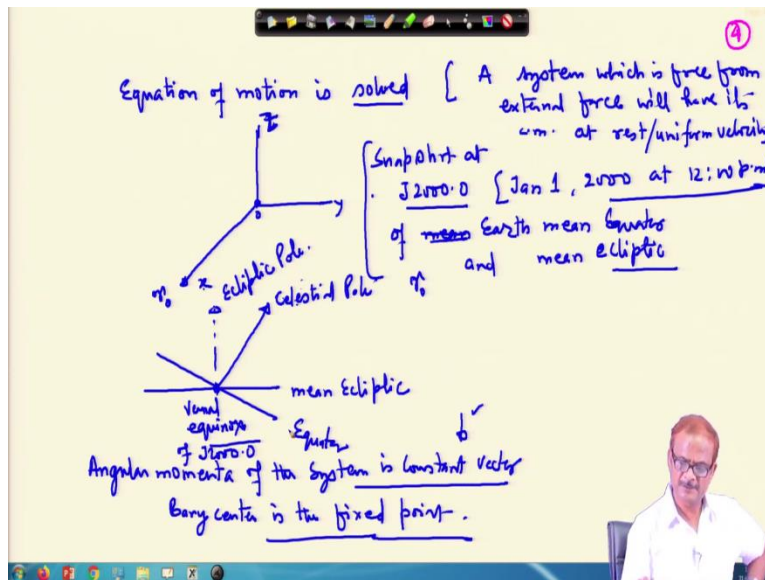 4
Equation of motion is solved { A system which is free from
external force will have its
c.m. at rest/uniform velocity
z
y
0
x
♈0
Snapshot at
J2000.0 [Jan 1, 2000 at 12:00 p.m
of mean Earth mean Equator
and mean ecliptic
♈0
Ecliptic Pole.
Celestial Pole
mean Ecliptic
Vernal
equinox
of J2000.0
Equator
Angular momenta of the system is constant vector
Bary center is the fixed point.